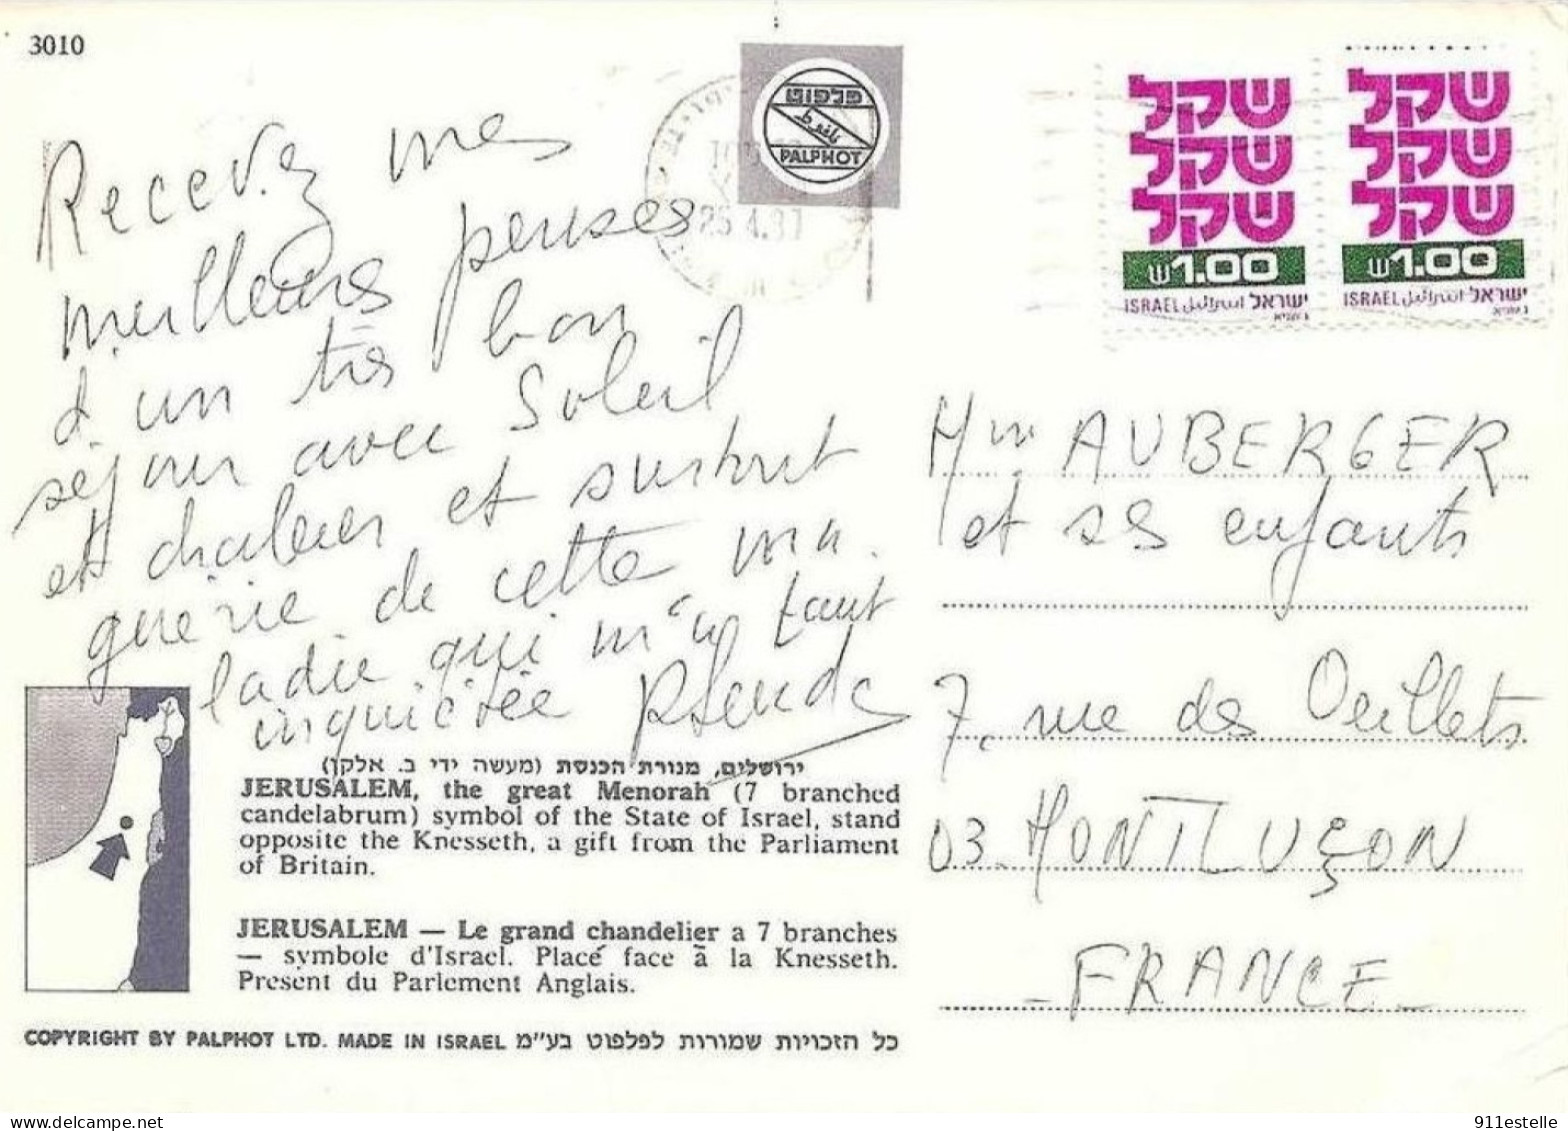 3010
פלפוט
PALPHOT
25.4.81
שקל שקל
שקל שקל
שקל שקל
1.00 1.00
ISRAEL اسرائيل ישראל
ISRAEL اسرائيل ישראל
Recevez mes
meilleures pensées
d'un très bon
séjour avec Soleil
et chaleur et surtout
guérie de cette ma
ladie qui m'a tant
inquiétée
Mme AUBERGER
et ses enfants
7, rue des Oeillets
03 - MONTLUÇON
- FRANCE -
ירושלים, מנורת הכנסת (מעשה ידי ב. אלקן)
JERUSALEM, the great Menorah (7 branched
candelabrum) symbol of the State of Israel, stand
opposite the Knesseth, a gift from the Parliament
of Britain.
JERUSALEM — Le grand chandelier a 7 branches
— symbole d'Israel. Placé face à la Knesseth.
Présent du Parlement Anglais.
COPYRIGHT BY PALPHOT LTD. MADE IN ISRAEL כל הזכויות שמורות לפלפוט בע"מ
911estelle